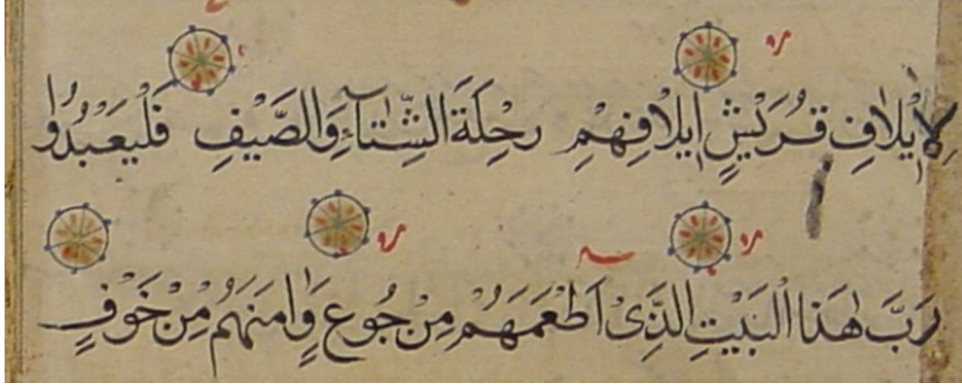 لِاِيْلَافِ قُرَيْشٍ اِيلَافِهِمْ رِحْلَةَ الشِّتَآءِ وَالصَّيْفِ فَلْيَعْبُدُوا
رَبَّ هٰذَا الْبَيْتِ الَّذِىْ اَطْعَمَهُمْ مِنْ جُوعٍ وَاٰمَنَهُمْ مِنْ خَوْفٍ